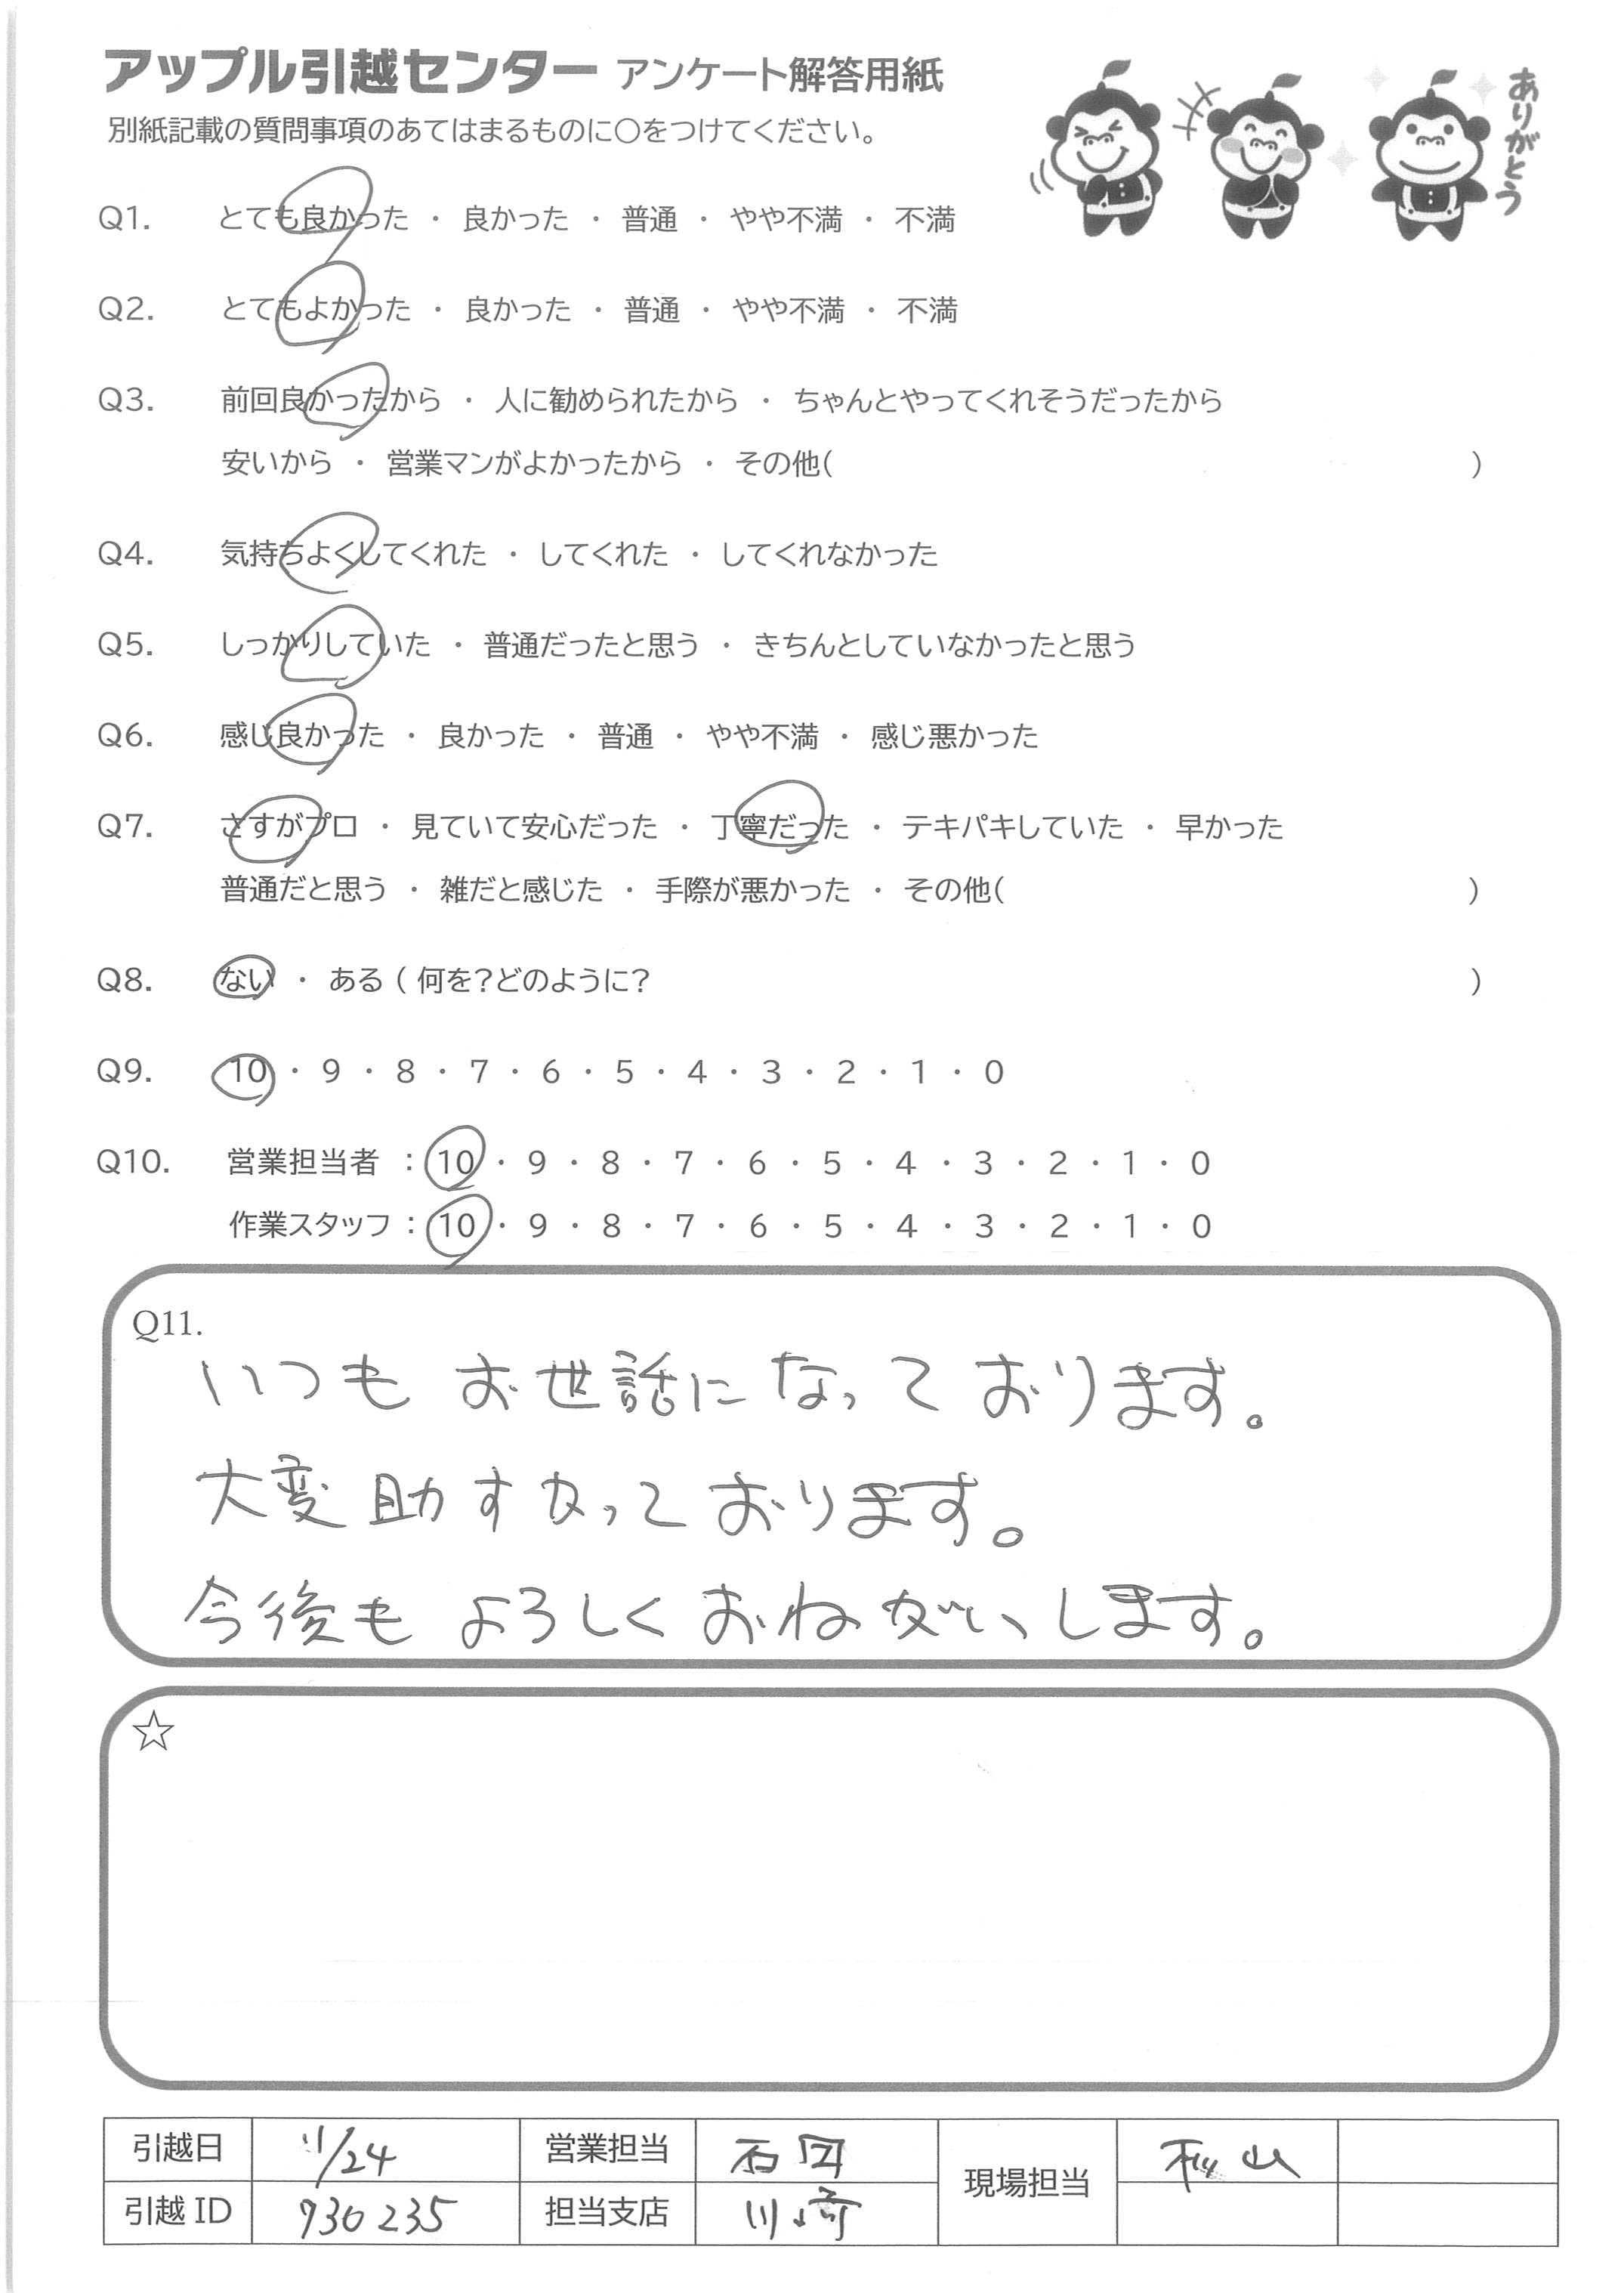 アップル引越センター アンケート解答用紙
ありがとう
別紙記載の質問事項のあてはまるものに○をつけてください。
Q1. とても良かった ・ 良かった ・ 普通 ・ やや不満 ・ 不満
Q2. とてもよかった ・ 良かった ・ 普通 ・ やや不満 ・ 不満
Q3. 前回良かったから ・ 人に勧められたから ・ ちゃんとやってくれそうだったから
安いから ・ 営業マンがよかったから ・ その他( )
Q4. 気持ちよくしてくれた ・ してくれた ・ してくれなかった
Q5. しっかりしていた ・ 普通だったと思う ・ きちんとしていなかったと思う
Q6. 感じ良かった ・ 良かった ・ 普通 ・ やや不満 ・ 感じ悪かった
Q7. さすがプロ ・ 見ていて安心だった ・ 丁寧だった ・ テキパキしていた ・ 早かった
普通だと思う ・ 雑だと感じた ・ 手際が悪かった ・ その他( )
Q8. ない ・ ある ( 何を?どのように? )
Q9. 10 ・ 9 ・ 8 ・ 7 ・ 6 ・ 5 ・ 4 ・ 3 ・ 2 ・ 1 ・ 0
Q10. 営業担当者 : 10 ・ 9 ・ 8 ・ 7 ・ 6 ・ 5 ・ 4 ・ 3 ・ 2 ・ 1 ・ 0
作業スタッフ : 10 ・ 9 ・ 8 ・ 7 ・ 6 ・ 5 ・ 4 ・ 3 ・ 2 ・ 1 ・ 0
Q11.
いつもお世話になっております。
大変助すかっております。
今後もよろしくおねがいします。
☆
引越日 11/24 営業担当 石岡 現場担当 山
引越ID 930235 担当支店 川崎